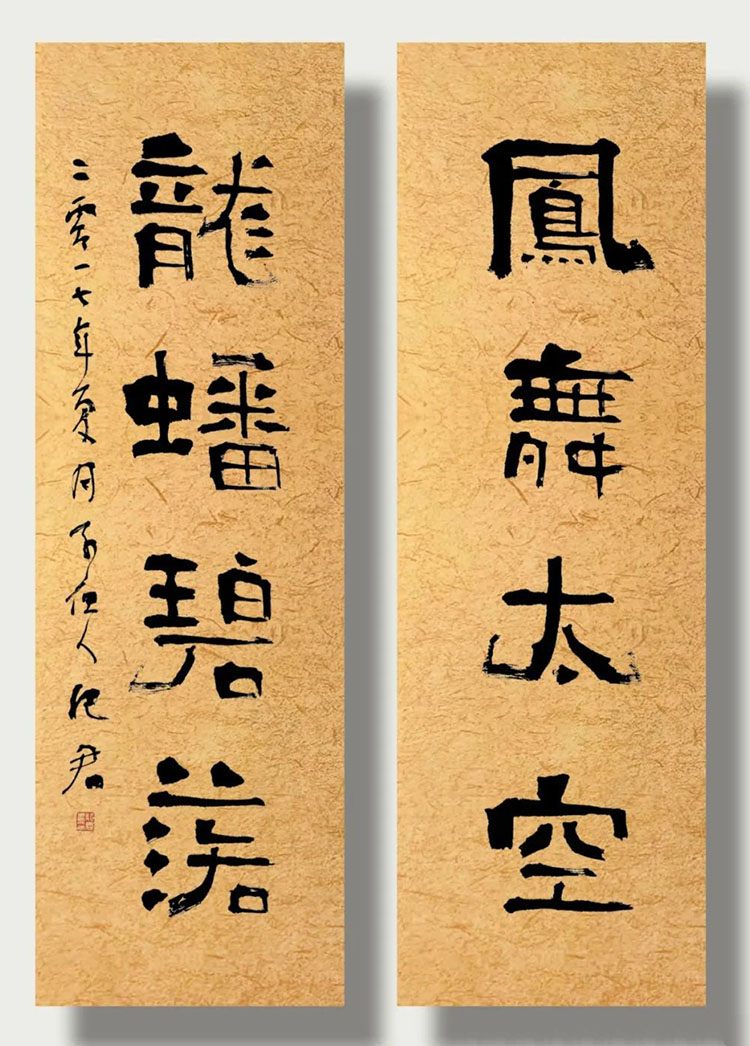 鳳舞太空
龍蟠碧落
二零一七年夏月子恒人纪君